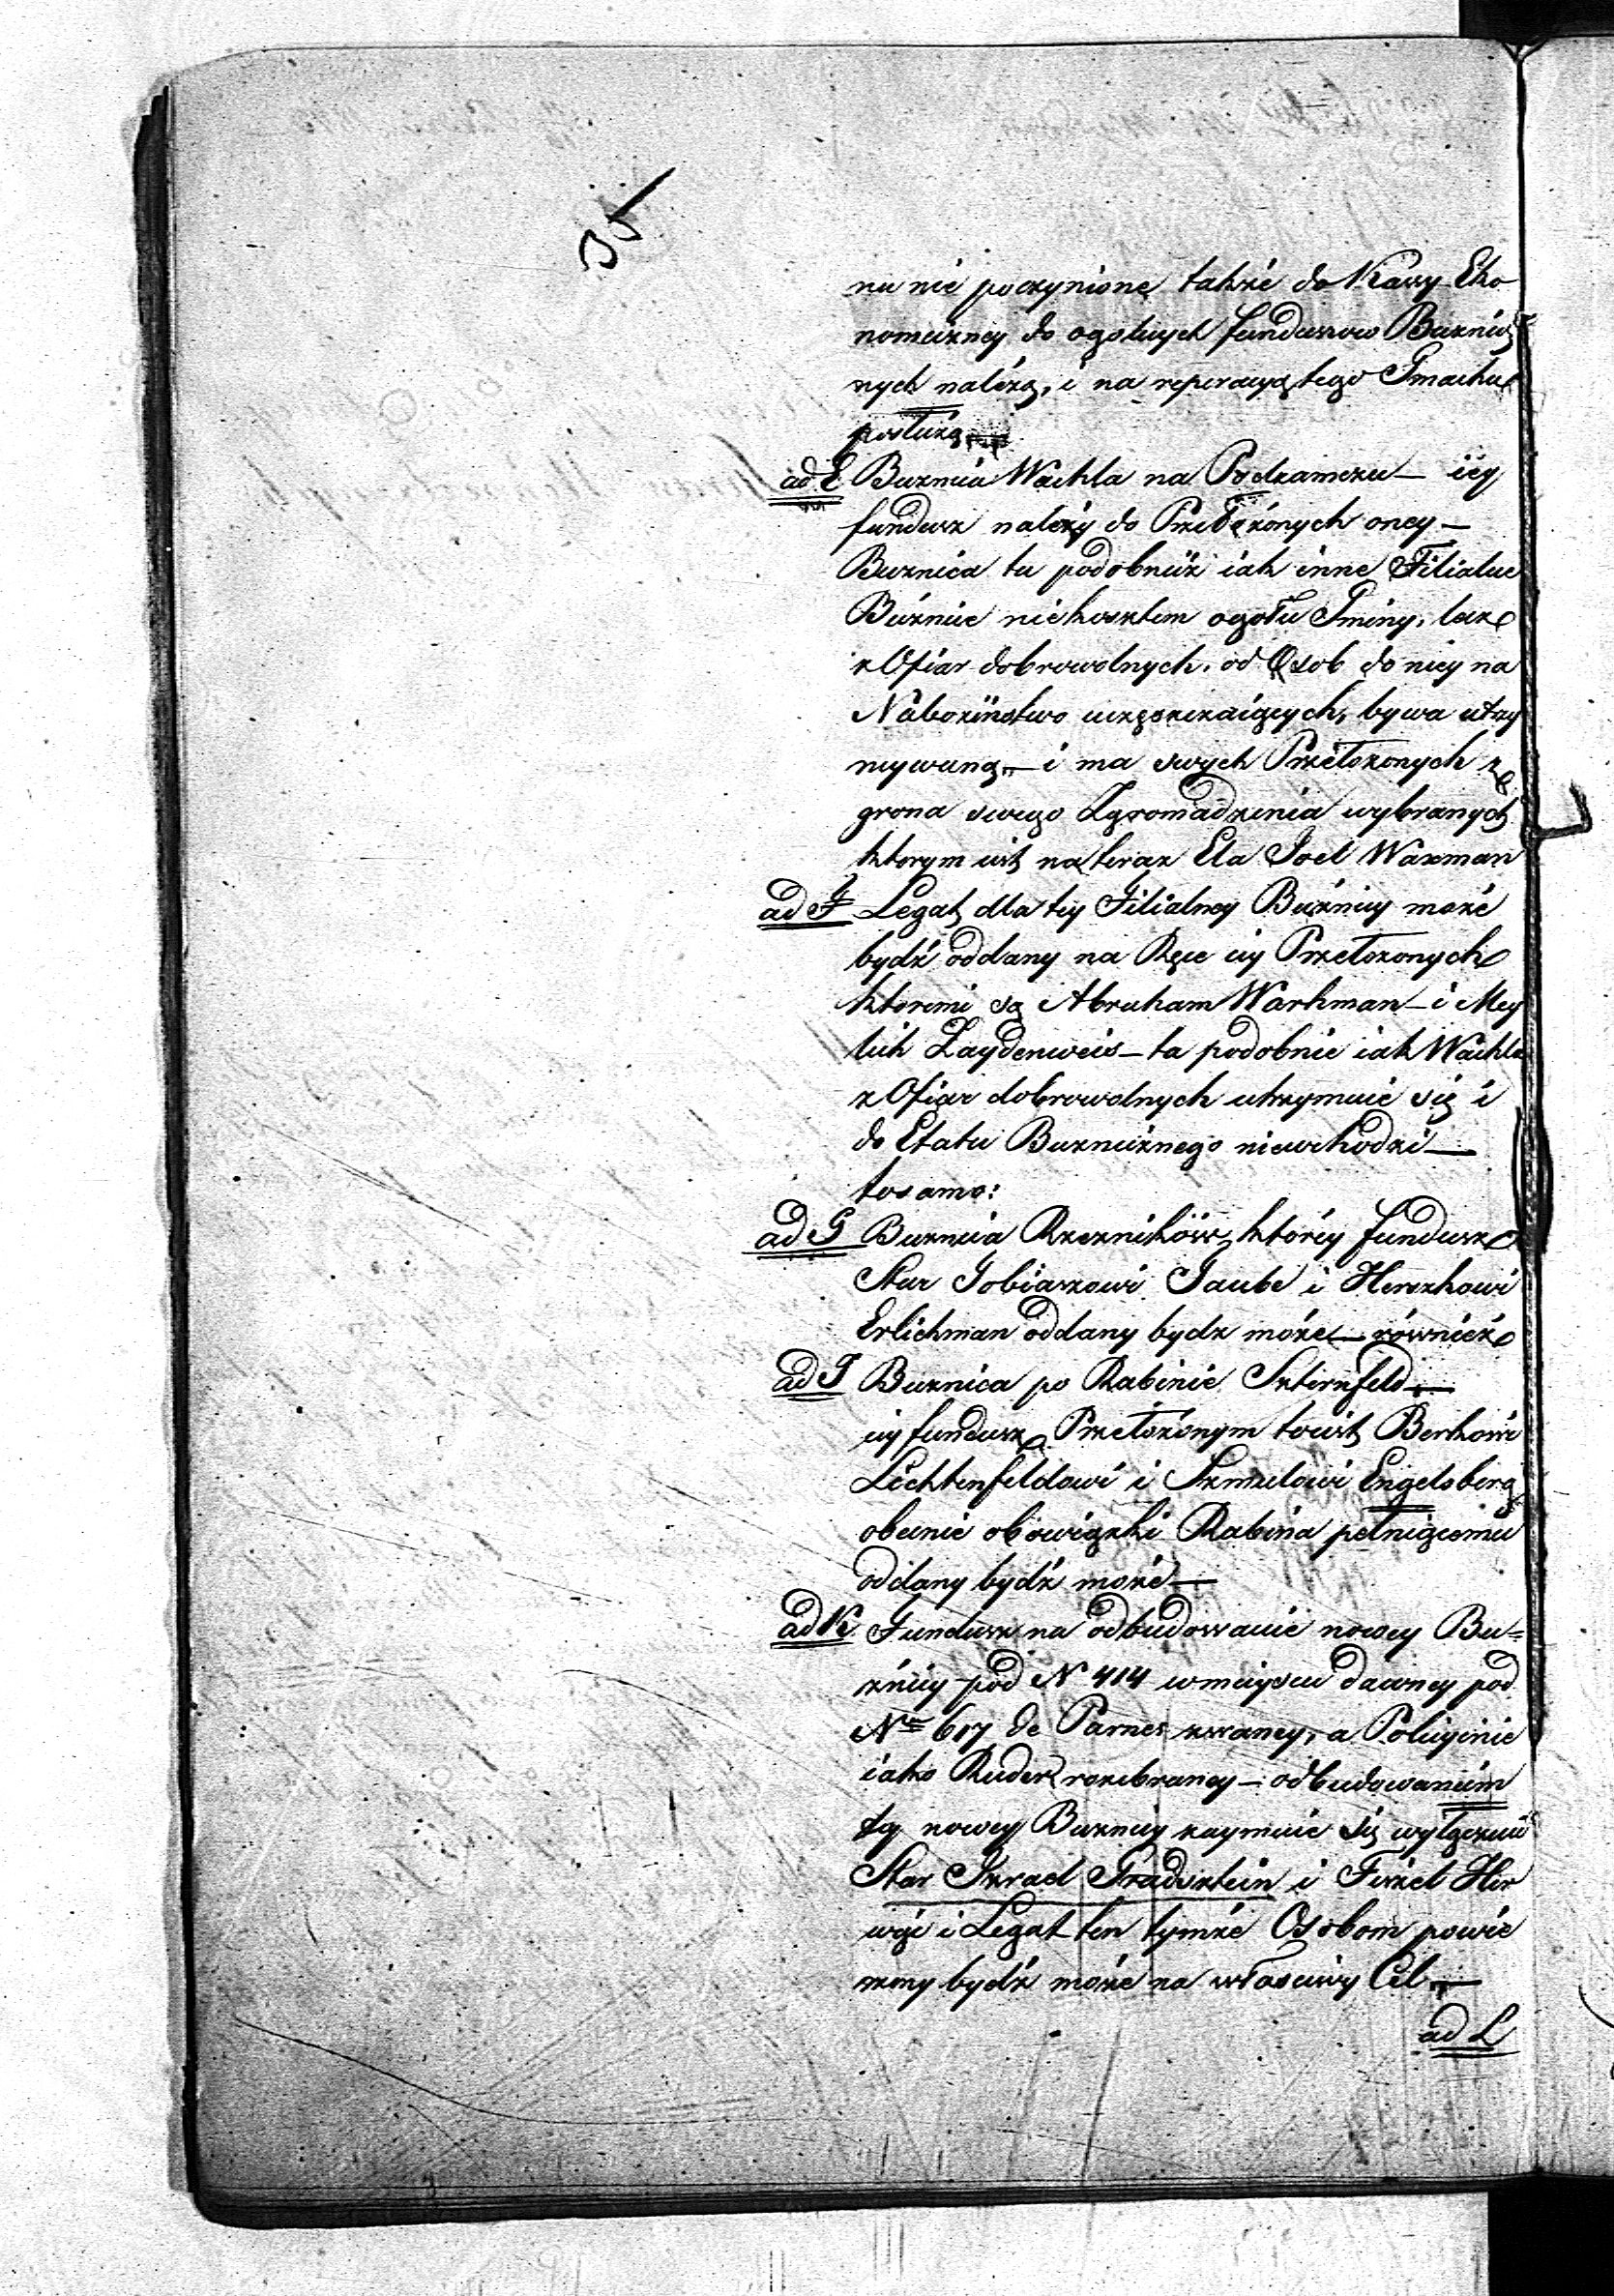 35
nu nie poczynione także do Kassy Eko
nomiczney do ogolnych funduszow Buznicz
nych należą, i na reperacyą tego Gmachu
posłużą
ad E Buznica Wachla na Podzamczu — iey
fundusz należy do Przełożonych oney —
Buznica ta podobnież iak inne Filialne
Buźnice nie kosztem ogołu Gminy, lecz
z Ofiar dobrowolnych, od Osob do niey na
Nabożeństwo uczęszczaiących, bywa utrzy
mywaną — i ma swych Przełożonych z
grona swego Zgromadzenia wybranych
ktorym iest na teraz Ela Joel Waxman
ad F Legat dla tey Filialney Buźnicy może
bydź oddany na Ręce iey Przełożonych
ktoremi są Abraham Warhman — i Mey
lich Zaydenweis — ta podobnie iak Wachla
z Ofiar dobrowolnych utrzymuie się i
do Etatu Buznicznego niewchodzi —
tosamo:
ad G Buznica Rzezników, którey fundusz
Star Tobiaszowi Taube i Herszkowi
Erlichman oddany bydz może — również
ad J Buznica po Rabinie Szternfeld —
iey fundusz Przełożonym to iest Berkowi
Lichtenfeldowi i Szmulowi Engelsberg
obecnie obowiązki Rabina pełniącemu
oddany bydź może —
ad K Fundusz na odbudowanie nowey Bu=
źnicy pod N 414 w mieyscu dawney pod
Nr 617 de Parnes zwaney, a Policyinie
iako Rudera rozebraney — odbudowaniem
tey nowey Buznicy zaymuie się wyłącznie
Star Izrael Gradsztein i Fiszel Hir
wge i Legat ten tymże Osobom powie
rzony bydź może na właściwy Cel —
ad L